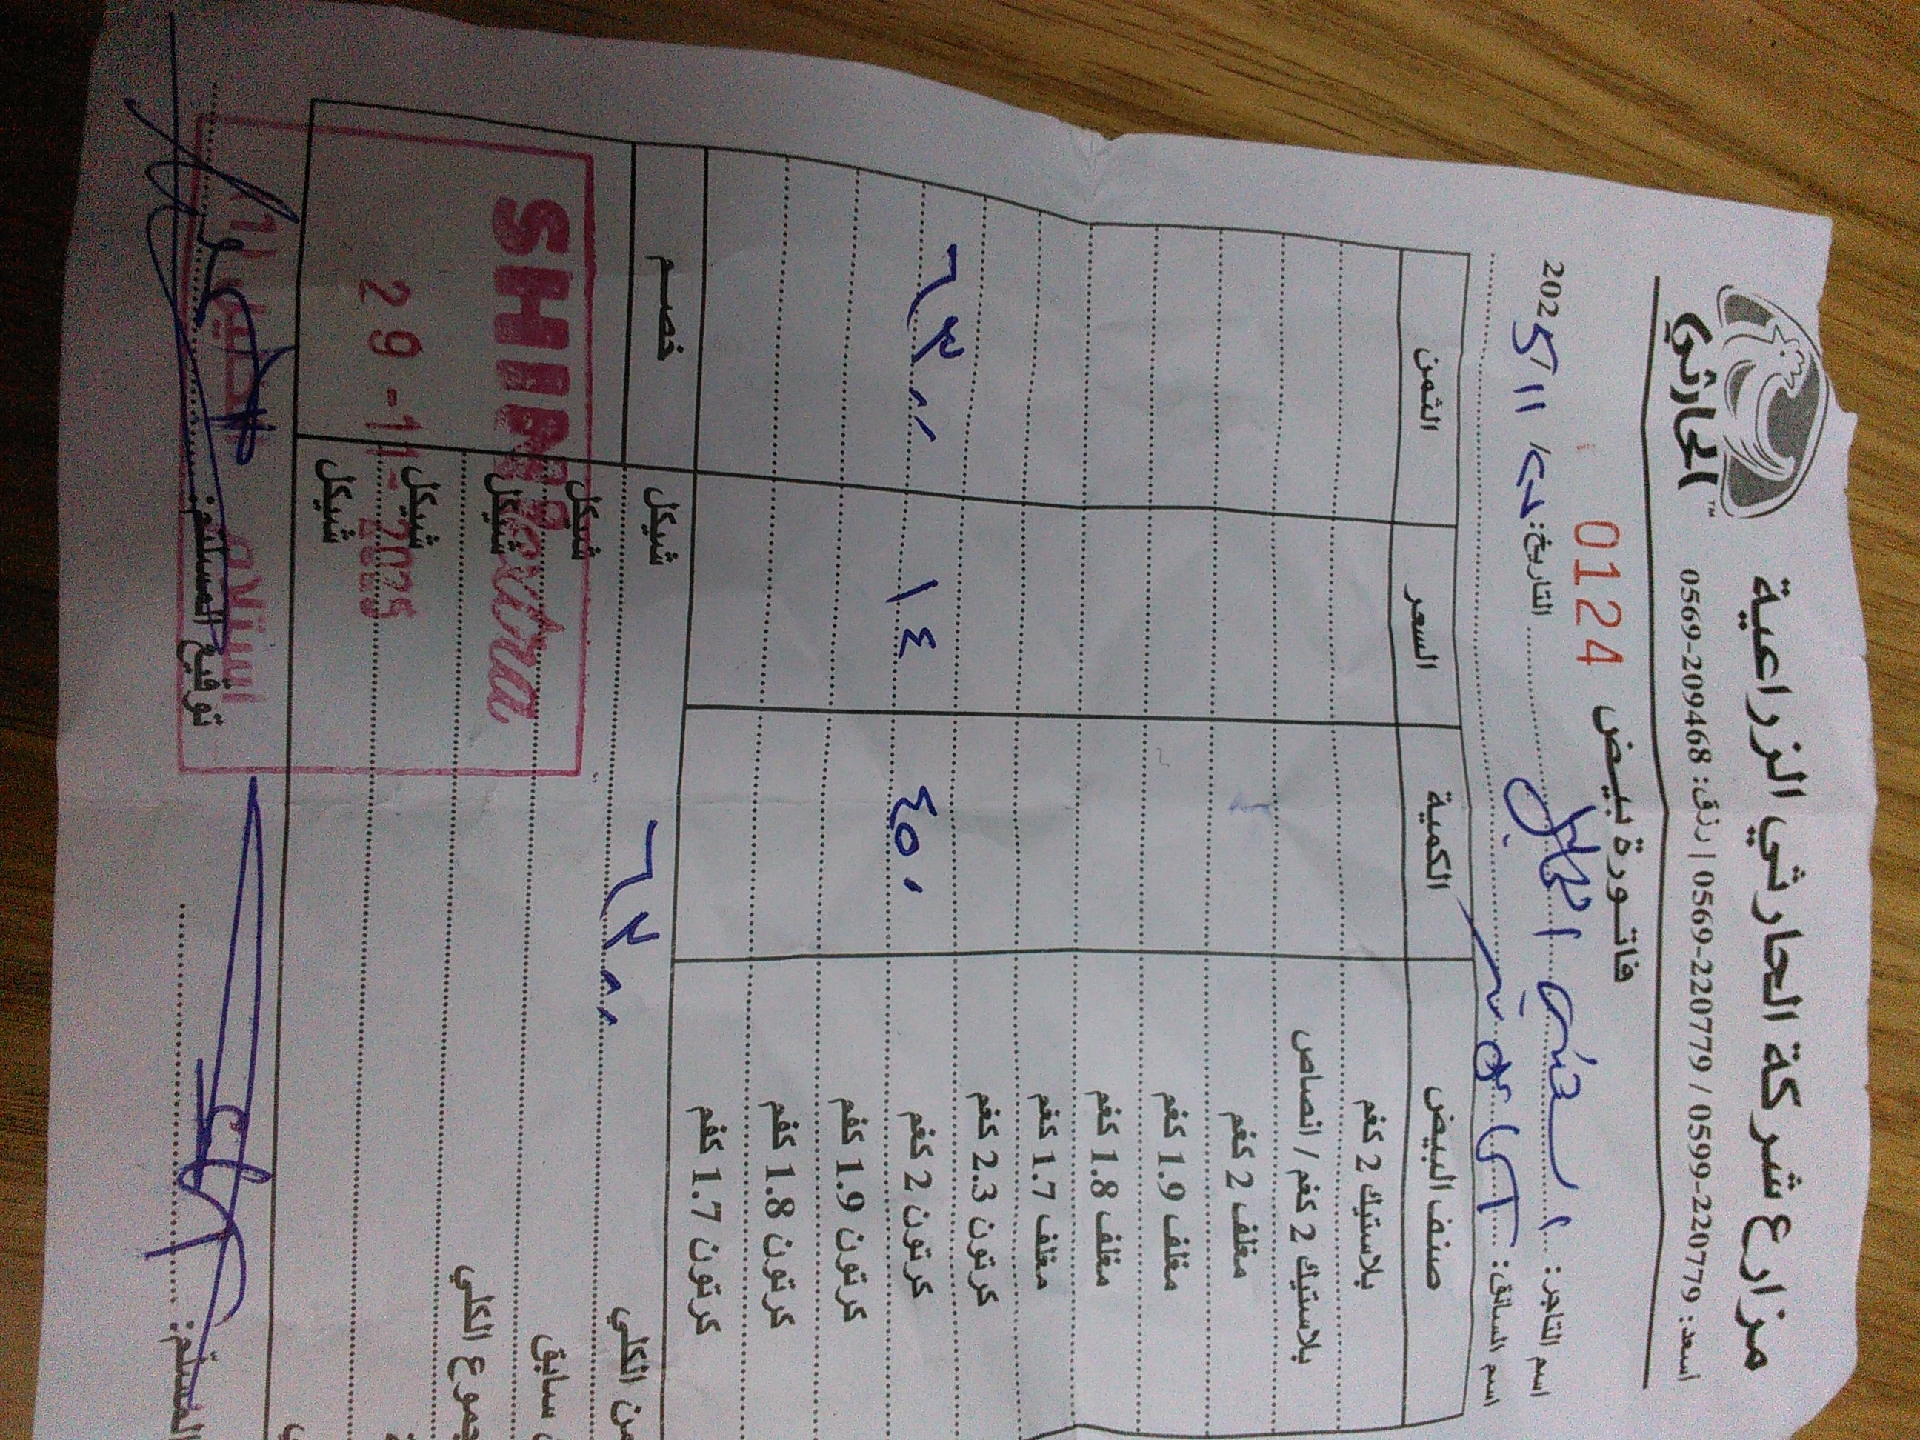 مزارع شركة الحارثي الزراعية
الحارثي™
اسعد: 0599-220779 / 0569-220779 | رزق: 0569-209468
فاتورة بيض 0124
اسم التاجر: التاريخ: 2025
اسم السائق:
صنف البيض الكمية السعر الثمن
بلاستيك 2 كغم
بلاستيك 2 كغم / انصاص
مغلف 2 كغم
مغلف 1.9 كغم
مغلف 1.8 كغم
مغلف 1.7 كغم
كرتون 2.3 كغم
كرتون 2 كغم ٤٥٠ ١٤ ٦٣٠٠
كرتون 1.9 كغم
كرتون 1.8 كغم
كرتون 1.7 كغم
الكلي ٦٣٠٠ شيكل خصم
سابق شيكل
المجموع الكلي شيكل
شيكل
شيكل
SHINI extra
29-11-2025
استلام
توقيع المستلم: